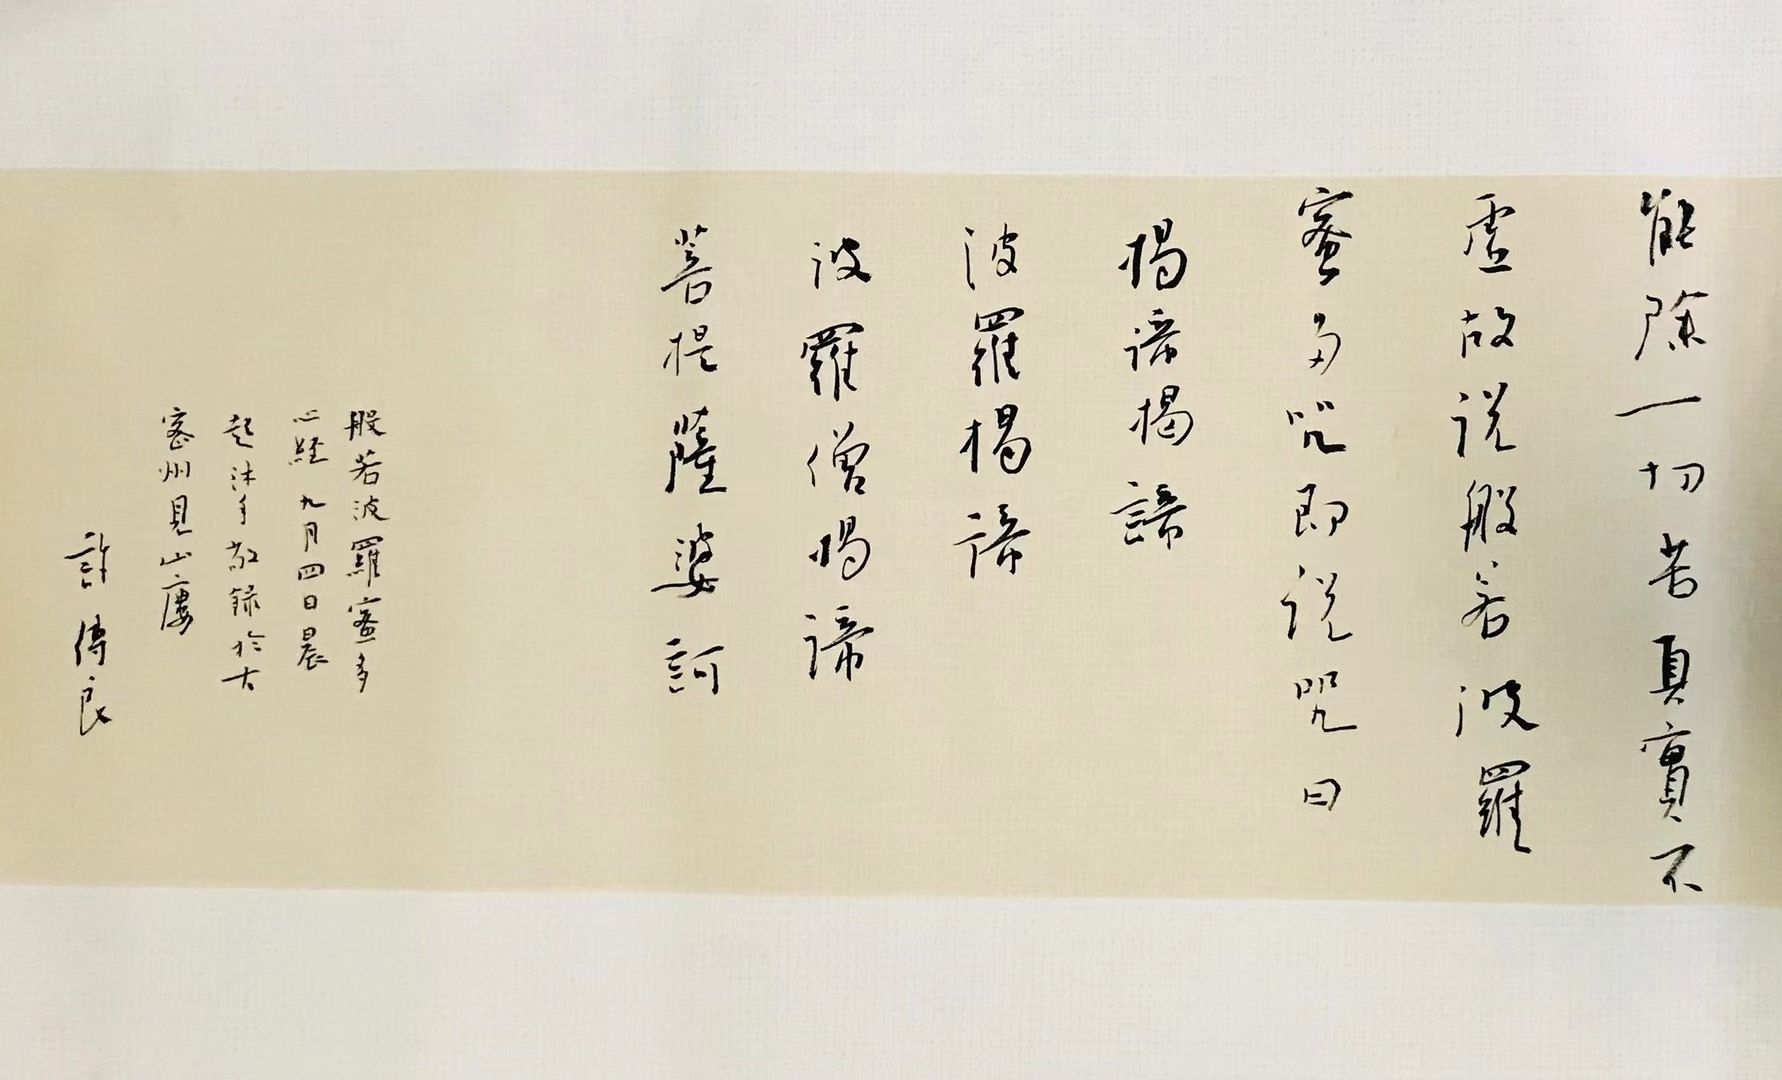 能除一切苦真實不
虛故说般若波羅
蜜多咒即说咒曰
揭谛揭諦
波羅揭谛
波羅僧揭諦
菩提薩婆訶
般若波羅蜜多
心経九月四日晨
起沐手敬録於古
密州見山廔
許傳良